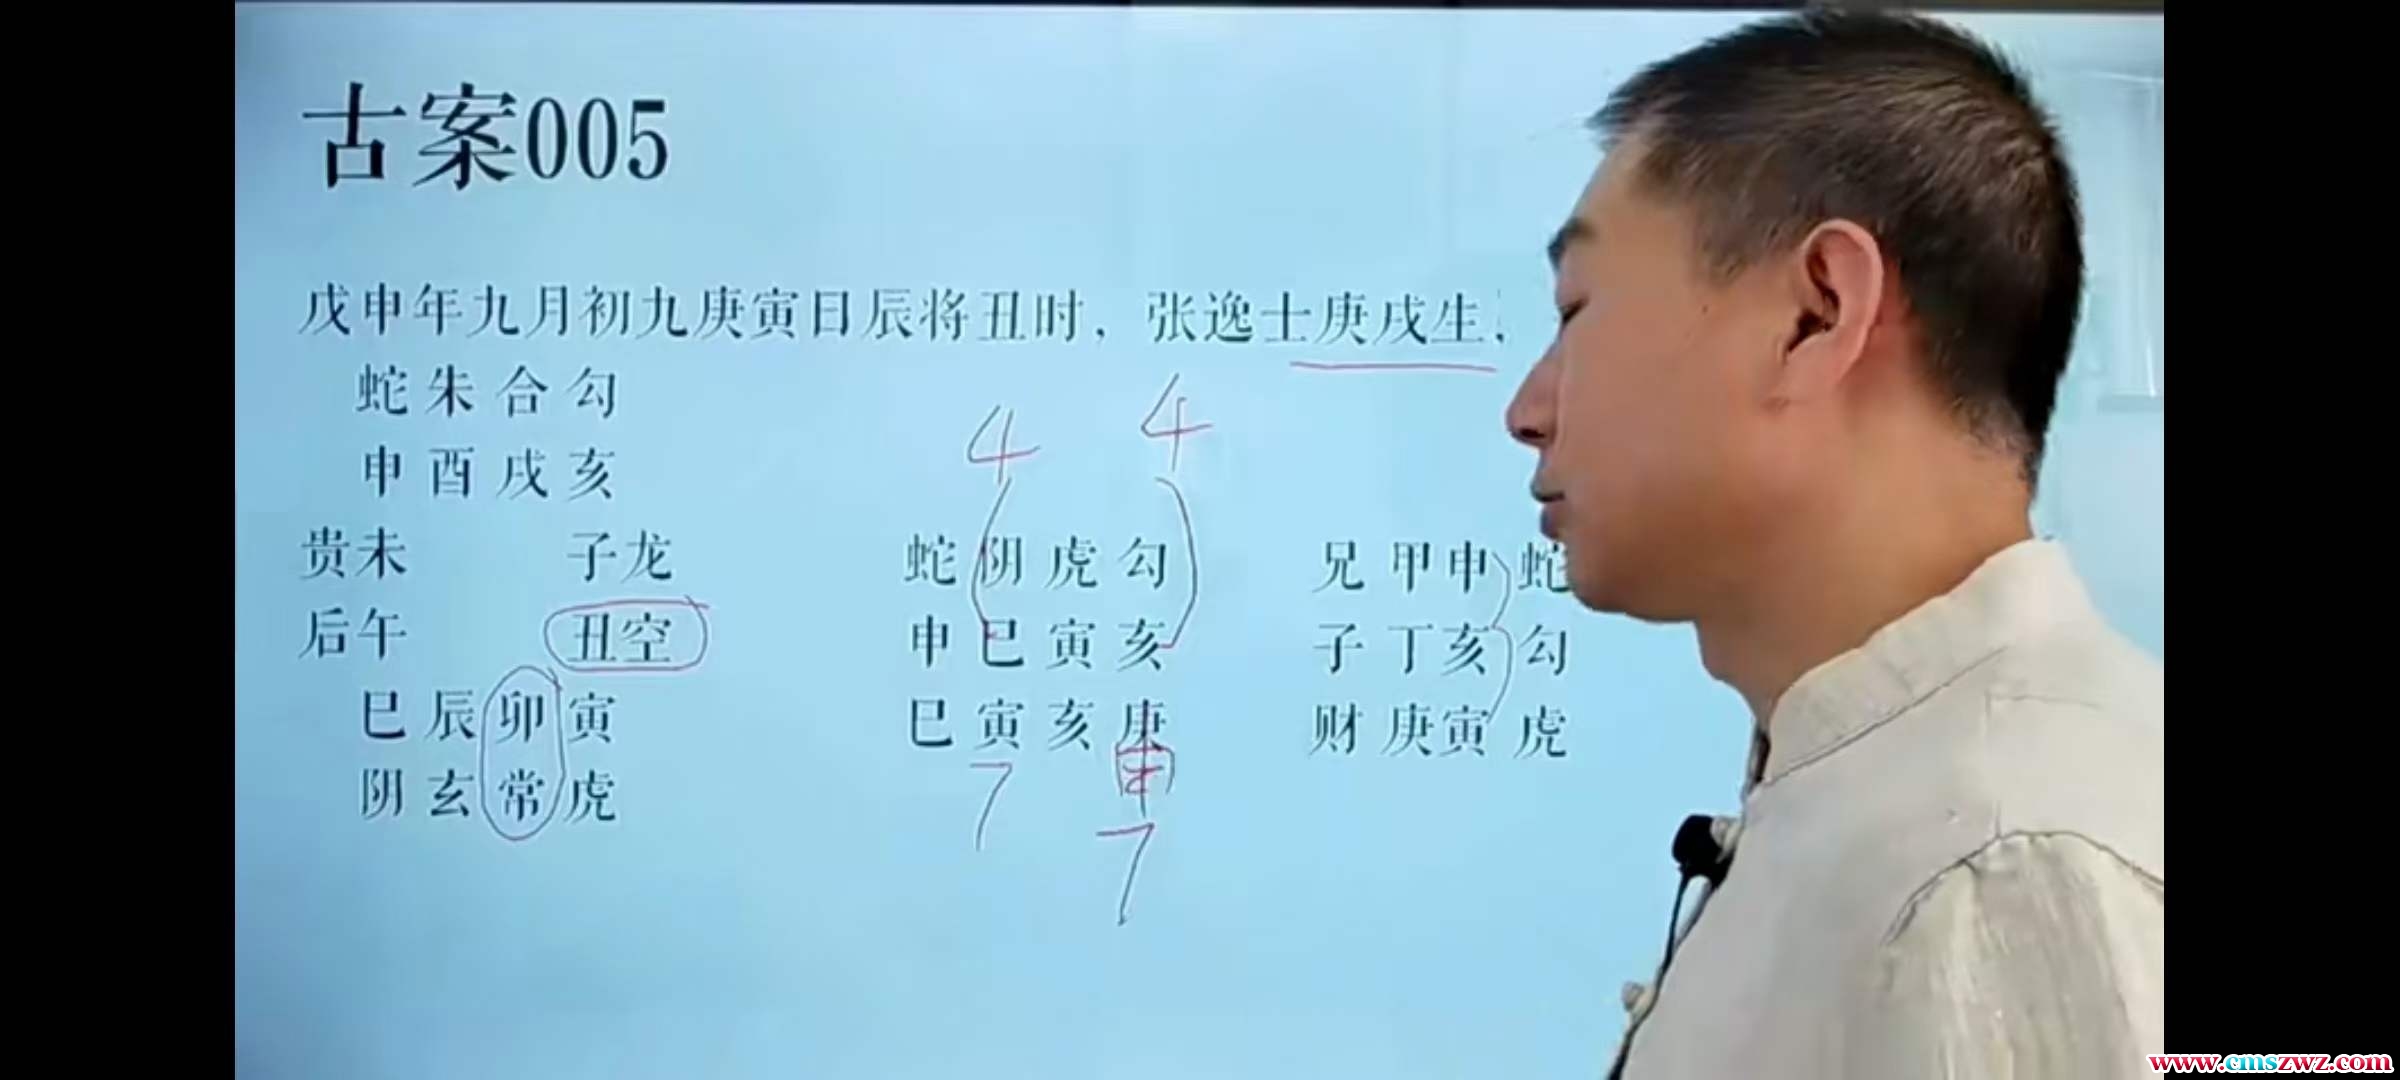 古案005
戊申年九月初九庚寅日辰将丑时，张逸士庚戌生，
蛇朱合勾
申酉戌亥
贵未 子龙
后午 丑空
巳辰卯寅
阴玄常虎
4 4
蛇阴虎勾
申巳寅亥
巳寅亥庚
申
7 7
兄甲申蛇
子丁亥勾
财庚寅虎
www.cmszwz.com